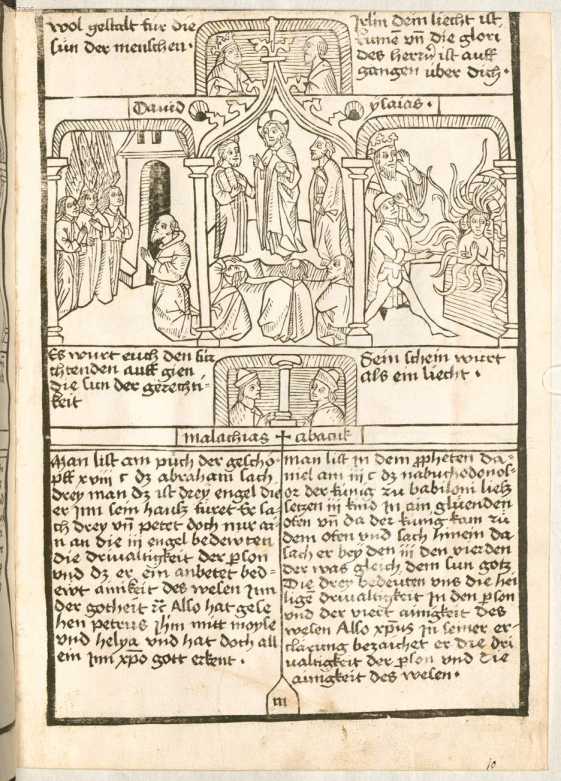 wol gestalt fur die
sun der menschen ·
Jrlm dem liecht ist
kumē vn̄ die glori
des herrn ist auff
gangen uber dich ·
Dauid
ysaias ·
Es wurt euch den furchtenden auff gien
die sun der gerechti-
keit
Sein schein wurt
als ein liecht ·
malachias + abacuk
Man list am puch der gescho-
pff xviii c dz abraham̄ sach
drey man dz ist drey engel die
er Jnn sein hausz furet Er sa-
ch drey vn̄ petet doch nur ai-
n an die iii engel bedewten
die driualtigkeit der pson
vnd dz er ein anbetet bed-
ewt ainikeit des wesen Jnn
der gotheit ꝛc Also hat gese
hen petrus ihm̄ mitt moyse
vnd helya vnd hat doch all
ein Jm̄ xp̄o gott erkent ·
man list in dem ꝓpheten da-
niel am iii c dz nabuchodonos-
or der kunig zu babiloni liesz
setzen iii kind in ain gluenden
ofen vn̄ da der kung kam zu
dem ofen vnd sach hinein da
sach er bey den iii den vierden
der was gleich dem sun gotz
Die drey bedeuten vns die hei
ligē driualtigkeit in den pson
vnd der viert ainigkeit des
wesen Also xp̄us Jn̄ seiner er-
clarung bezaichet er die dri
ualtigkeit der pson vnd die
ainigkeit des wesen ·
m
10